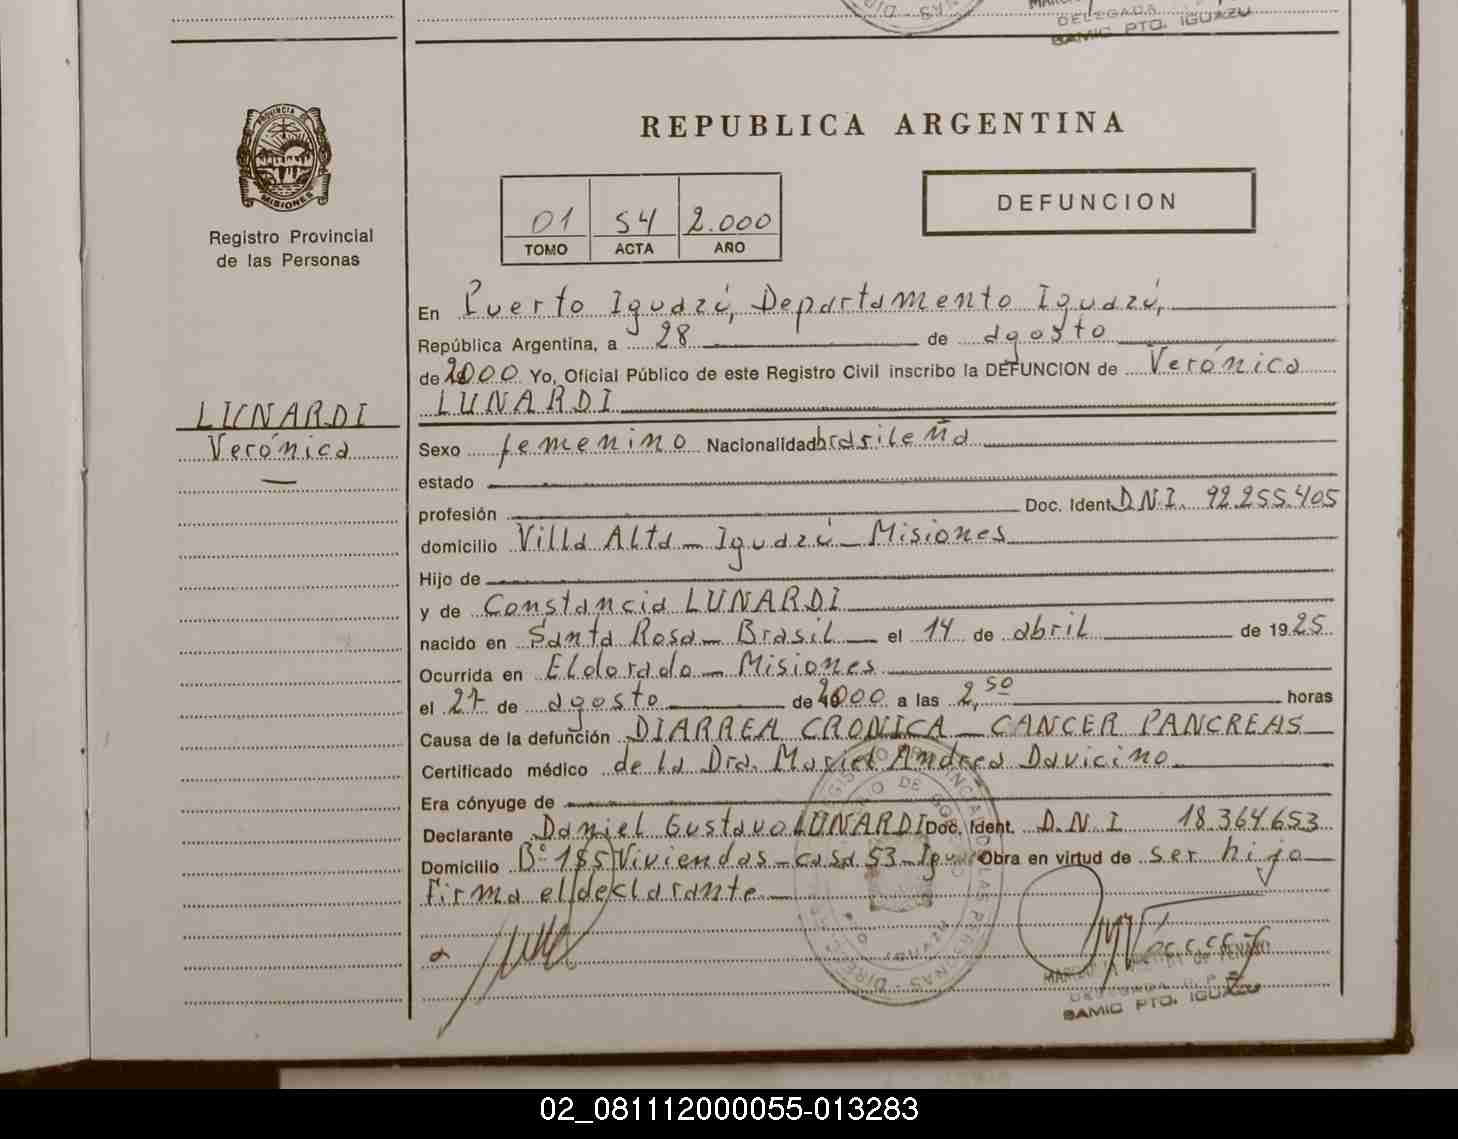 DELEGADA
SAMIC PTO. IGUAZU
PROVINCIA DE
MISIONES
Registro Provincial
de las Personas
REPUBLICA ARGENTINA
01 54 2.000
TOMO ACTA AÑO
DEFUNCION
En Puerto Iguazú, Departamento Iguazú,
República Argentina, a 28 de agosto
de 2000 Yo, Oficial Público de este Registro Civil inscribo la DEFUNCION de Verónica
LUNARDI
LUNARDI
Verónica
Sexo femenino Nacionalidad brasileña
estado
profesión Doc. Ident. D.N.I. 92.255.405
domicilio Villa Alta - Iguazú - Misiones
Hijo de
y de Constancia LUNARDI
nacido en Santa Rosa - Brasil el 14 de abril de 1925
Ocurrida en Eldorado - Misiones
el 27 de agosto de 2000 a las 2,50 horas
Causa de la defunción DIARREA CRONICA - CANCER PANCREAS
Certificado médico de la Dra. Mariel Andrea Davicino
Era cónyuge de
Declarante Daniel Gustavo LUNARDI Doc. Ident. D.N.I 18.364.653
Domicilio Bº 185 Viviendas - casa 53 - Obra en virtud de ser hijo
Firma el declarante
SAMIC PTO. IGUAZU
02_081112000055-013283